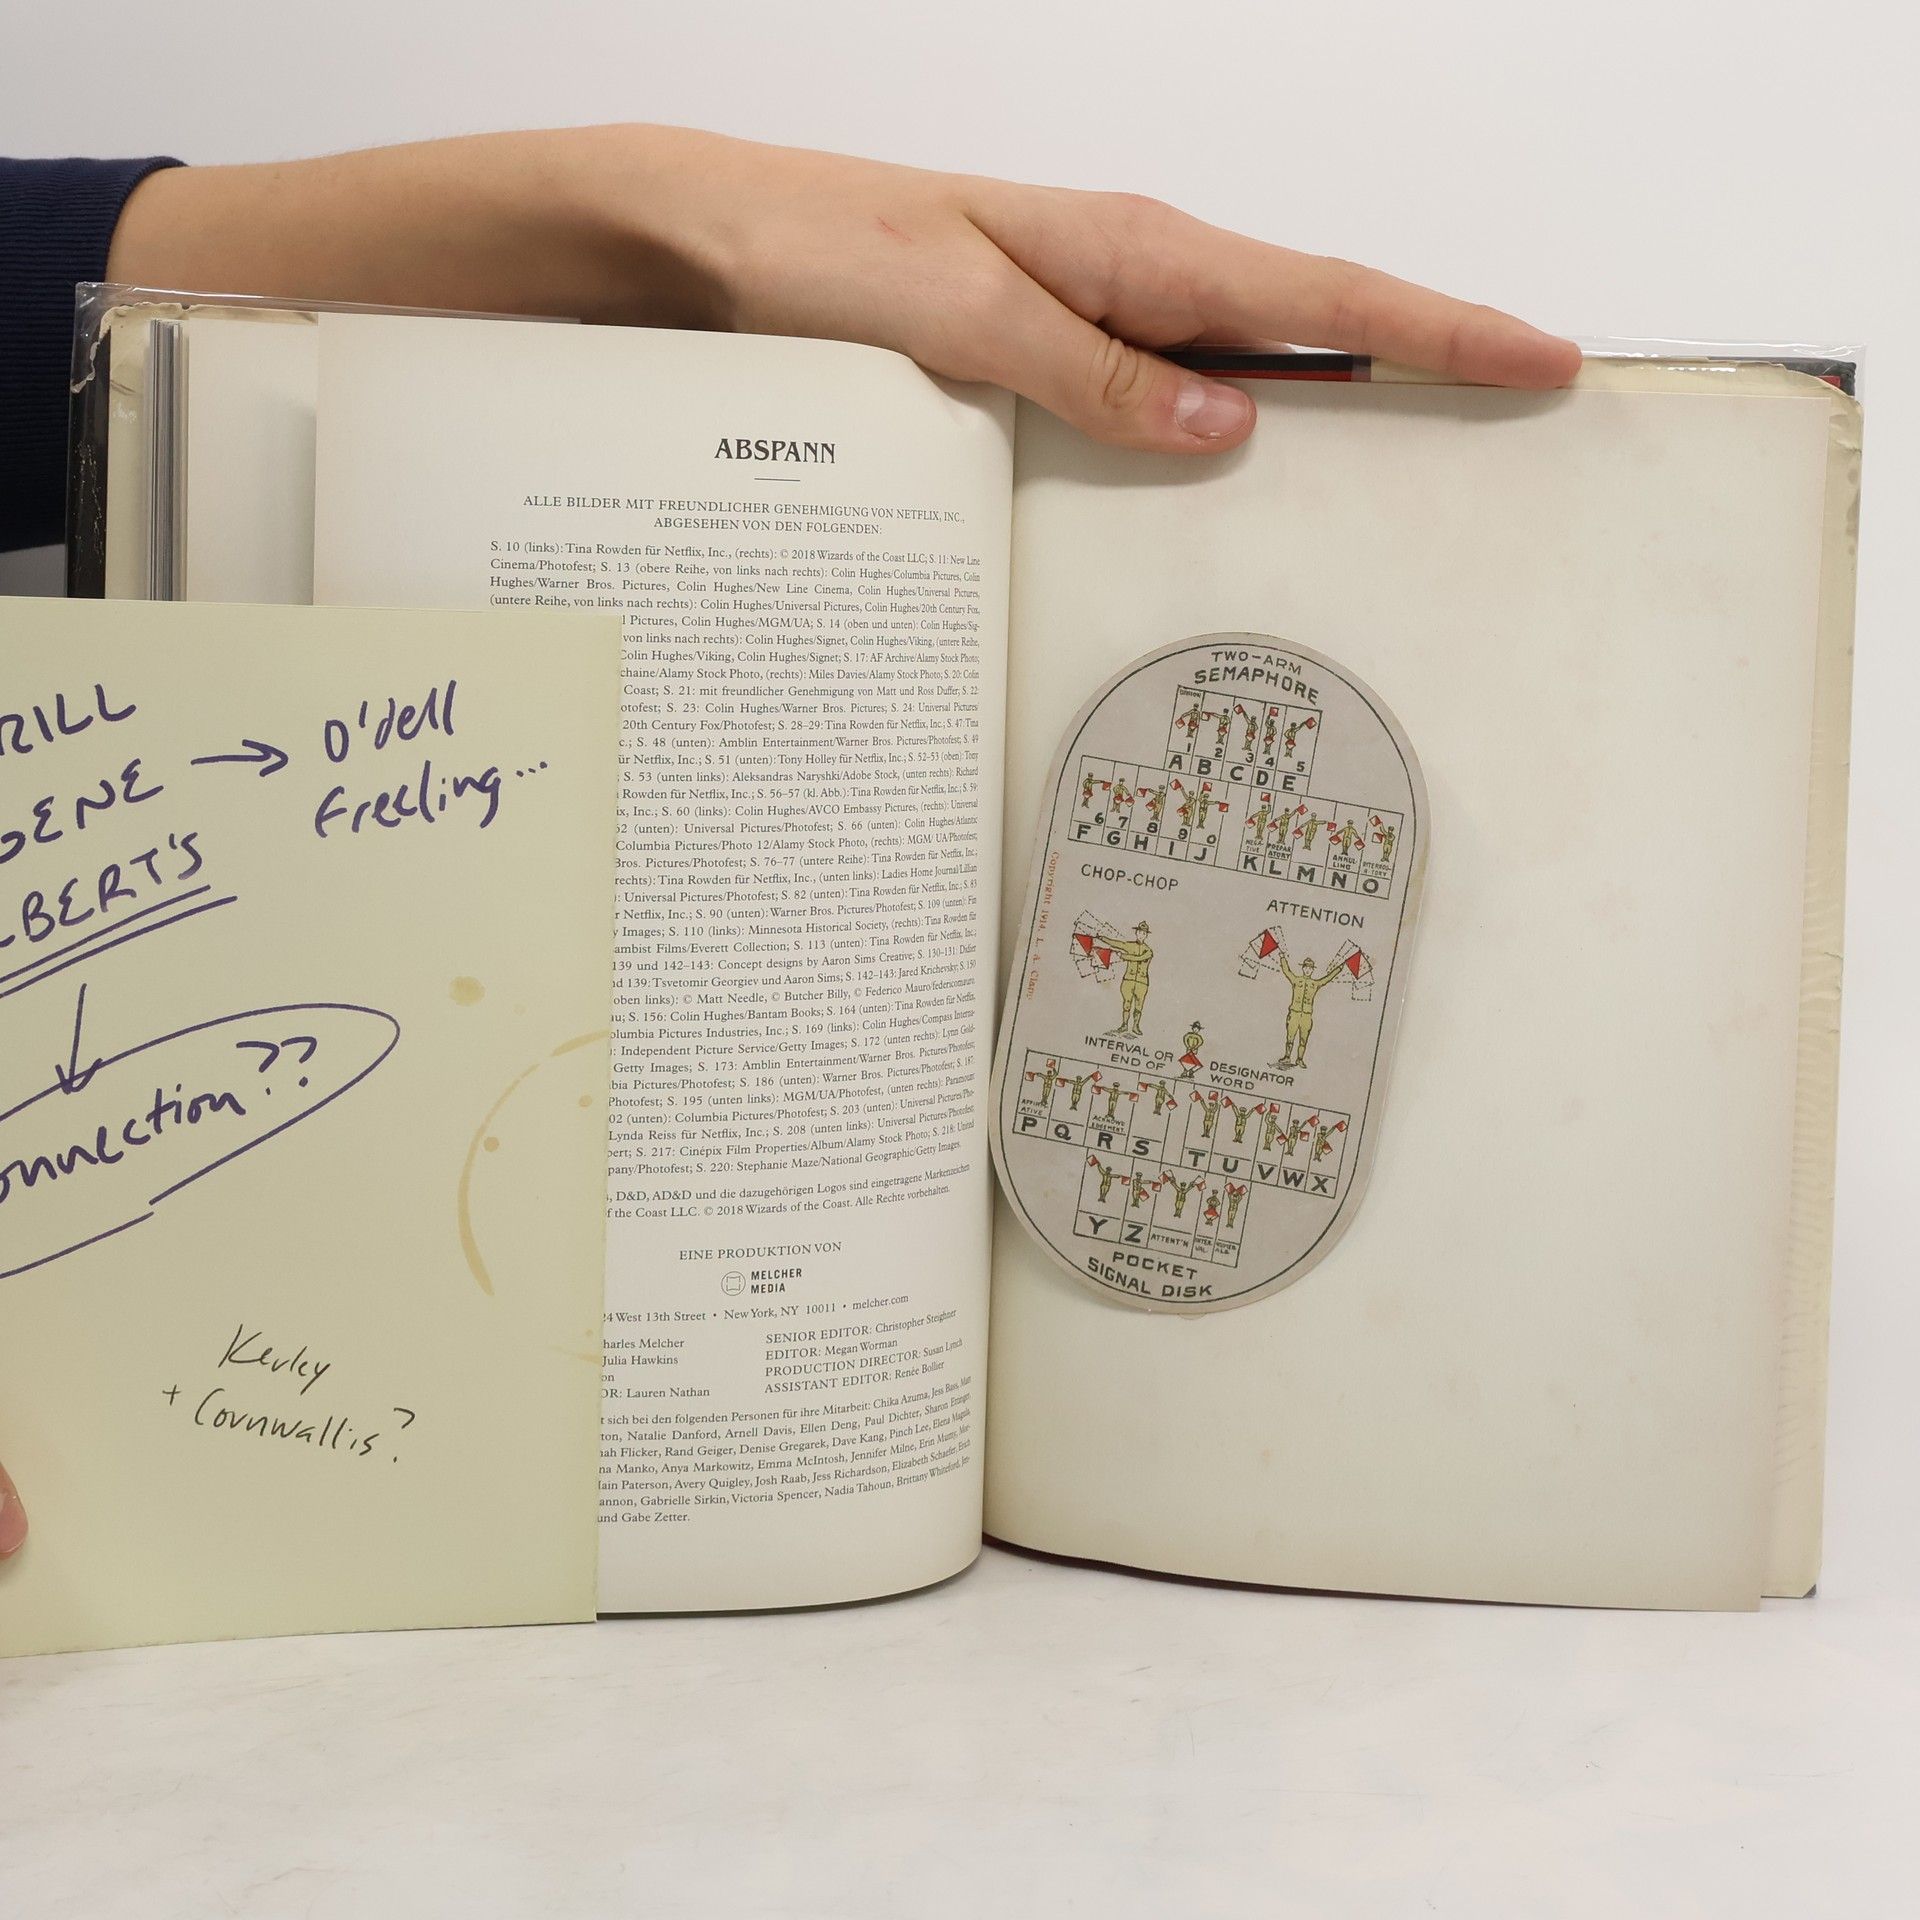 RILL
ENE → O'dell
Freeling...
BERT'S
onnection??
Kerley
+ Cornwallis?
ABSPANN
ALLE BILDER MIT FREUNDLICHER GENEHMIGUNG VON NETFLIX, INC.,
ABGESEHEN VON DEN FOLGENDEN:
S. 10 (links): Tina Rowden für Netflix, Inc., (rechts): © 2018 Wizards of the Coast LLC; S. 11: New Line
Cinema/Photofest; S. 13 (obere Reihe, von links nach rechts): Colin Hughes/Columbia Pictures, Colin
Hughes/Warner Bros. Pictures, Colin Hughes/New Line Cinema, Colin Hughes/Universal Pictures,
(untere Reihe, von links nach rechts): Colin Hughes/Universal Pictures, Colin Hughes/20th Century Fox,
l Pictures, Colin Hughes/MGM/UA; S. 14 (oben und unten): Colin Hughes/Sig-
von links nach rechts): Colin Hughes/Signet, Colin Hughes/Viking, (untere Reihe,
Colin Hughes/Viking, Colin Hughes/Signet; S. 17: AF Archive/Alamy Stock Photo;
chaine/Alamy Stock Photo, (rechts): Miles Davies/Alamy Stock Photo; S. 20: Colin
Coast; S. 21: mit freundlicher Genehmigung von Matt und Ross Duffer; S. 22:
otofest; S. 23: Colin Hughes/Warner Bros. Pictures; S. 24: Universal Pictures/
20th Century Fox/Photofest; S. 28–29: Tina Rowden für Netflix, Inc.; S. 47: Tina
c.; S. 48 (unten): Amblin Entertainment/Warner Bros. Pictures/Photofest; S. 49
ür Netflix, Inc.; S. 51 (unten): Tony Holley für Netflix, Inc.; S. 52–53 (oben): Tony
; S. 53 (unten links): Aleksandras Naryshki/Adobe Stock, (unten rechts): Richard
Rowden für Netflix, Inc.; S. 56–57 (kl. Abb.): Tina Rowden für Netflix, Inc.; S. 59:
ix, Inc.; S. 60 (links): Colin Hughes/AVCO Embassy Pictures, (rechts): Universal
62 (unten): Universal Pictures/Photofest; S. 66 (unten): Colin Hughes/Atlantic
Columbia Pictures/Photo 12/Alamy Stock Photo, (rechts): MGM/ UA/Photofest;
Bros. Pictures/Photofest; S. 76–77 (untere Reihe): Tina Rowden für Netflix, Inc.;
rechts): Tina Rowden für Netflix, Inc., (unten links): Ladies Home Journal/Lillian
): Universal Pictures/Photofest; S. 82 (unten): Tina Rowden für Netflix, Inc.; S. 83
r Netflix, Inc.; S. 90 (unten): Warner Bros. Pictures/Photofest; S. 109 (unten):
y Images; S. 110 (links): Minnesota Historical Society, (rechts): Tina Rowden für
ambist Films/Everett Collection; S. 113 (unten): Tina Rowden für Netflix, Inc.;
139 und 142–143: Concept designs by Aaron Sims Creative; S. 130–131: Didier
nd 139: Tsvetomir Georgiev und Aaron Sims; S. 142–143: Jared Krichevsky; S. 150
oben links): © Matt Needle, © Butcher Billy, © Federico Mauro/federicomauro.
au; S. 156: Colin Hughes/Bantam Books; S. 164 (unten): Tina Rowden für Netflix,
olumbia Pictures Industries, Inc.; S. 169 (links): Colin Hughes/Compass Interna-
): Independent Picture Service/Getty Images; S. 172 (unten rechts): Lynn Gold-
Getty Images; S. 173: Amblin Entertainment/Warner Bros. Pictures/Photofest;
bia Pictures/Photofest; S. 186 (unten): Warner Bros. Pictures/Photofest; S. 187:
Photofest; S. 195 (unten links): MGM/UA/Photofest, (unten rechts): Paramount
02 (unten): Columbia Pictures/Photofest; S. 203 (unten): Universal Pictures/Pho-
Lynda Reiss für Netflix, Inc.; S. 208 (unten links): Universal Pictures/Photofest;
bert; S. 217: Cinépix Film Properties/Album/Alamy Stock Photo; S. 218: United
pany/Photofest; S. 220: Stephanie Maze/National Geographic/Getty Images.
, D&D, AD&D und die dazugehörigen Logos sind eingetragene Markenzeichen
f the Coast LLC. © 2018 Wizards of the Coast. Alle Rechte vorbehalten.
EINE PRODUKTION VON
MELCHER
MEDIA
24 West 13th Street • New York, NY 10011 • melcher.com
harles Melcher
Julia Hawkins
on
OR: Lauren Nathan
SENIOR EDITOR: Christopher Steighner
EDITOR: Megan Worman
PRODUCTION DIRECTOR: Susan Lynch
ASSISTANT EDITOR: Renée Bollier
t sich bei den folgenden Personen für ihre Mitarbeit: Chika Azuma, Jess Bass, Matt
ton, Natalie Danford, Arnell Davis, Ellen Deng, Paul Dichter, Sharon Ettinger,
ah Flicker, Rand Geiger, Denise Gregarek, Dave Kang, Pinch Lee, Elena Magula,
na Manko, Anya Markowitz, Emma McIntosh, Jennifer Milne, Erin Murray,
lain Paterson, Avery Quigley, Josh Raab, Jess Richardson, Elizabeth Schaefer, Erich
annon, Gabrielle Sirkin, Victoria Spencer, Nadia Tahoun, Brittany Whiteford, Jen-
und Gabe Zetter.
TWO-ARM
SEMAPHORE
1 2 3 4 5
A B C D E
6 7 8 9 0
NEGATIVE PREPARATORY ANNULLING INTERROGATORY
F G H I J K L M N O
CHOP-CHOP
ATTENTION
Copyright 1914. L. A. Clapp
INTERVAL OR
END OF
DESIGNATOR
WORD
AFFIRMATIVE ACKNOWLEDGEMENT
P Q R S T U V W X
Y Z ATTENT'N INTERVAL NUMERALS
POCKET
SIGNAL DISK